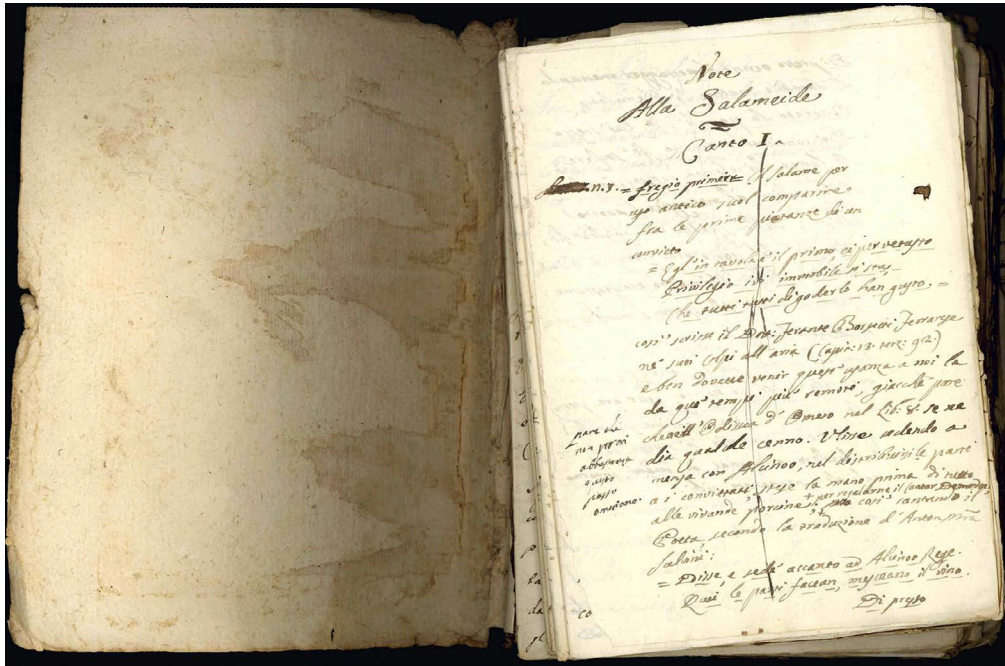 Note
Alla Salameide
Canto I.
n. 8. = fregio primier = Il Salame per
uso antico suol comparire
fra le prime pietanze di un
convito
= Egl' in tavola è il primo, e per vetusto
Privilegio ivi immobile si sta,
Che tutti tutti di goderlo han gusto. =
così scrive il Dott: Ferrante Borsetti Ferrarese
ne' suoi Colpi all' aria (Capit: 13. terz: 92.)
e ben dovette venir quest' usanza a noi la
da que' tempi più remoti, giacchè pare
che nell' Odissea d' Omero nel Lib: 8. se ne
dia qualche cenno. Ulisse sedendo a
mensa con Alcinoo, nel distribuirsi le parti
a i convittati, stese la mano prima di tutto
alle vivande porcine, + per regalarne il Cantor Demodoco, così cantando il
Poeta, secondo la traduzione d' Anton Mᵃ
Salvini:
= Disse, e sedè accanto ad Alcinoo Rege.
Quei le parti facean, mesceano il vino.
Di presto
pare che
non possi
abbastanza
questo
passo